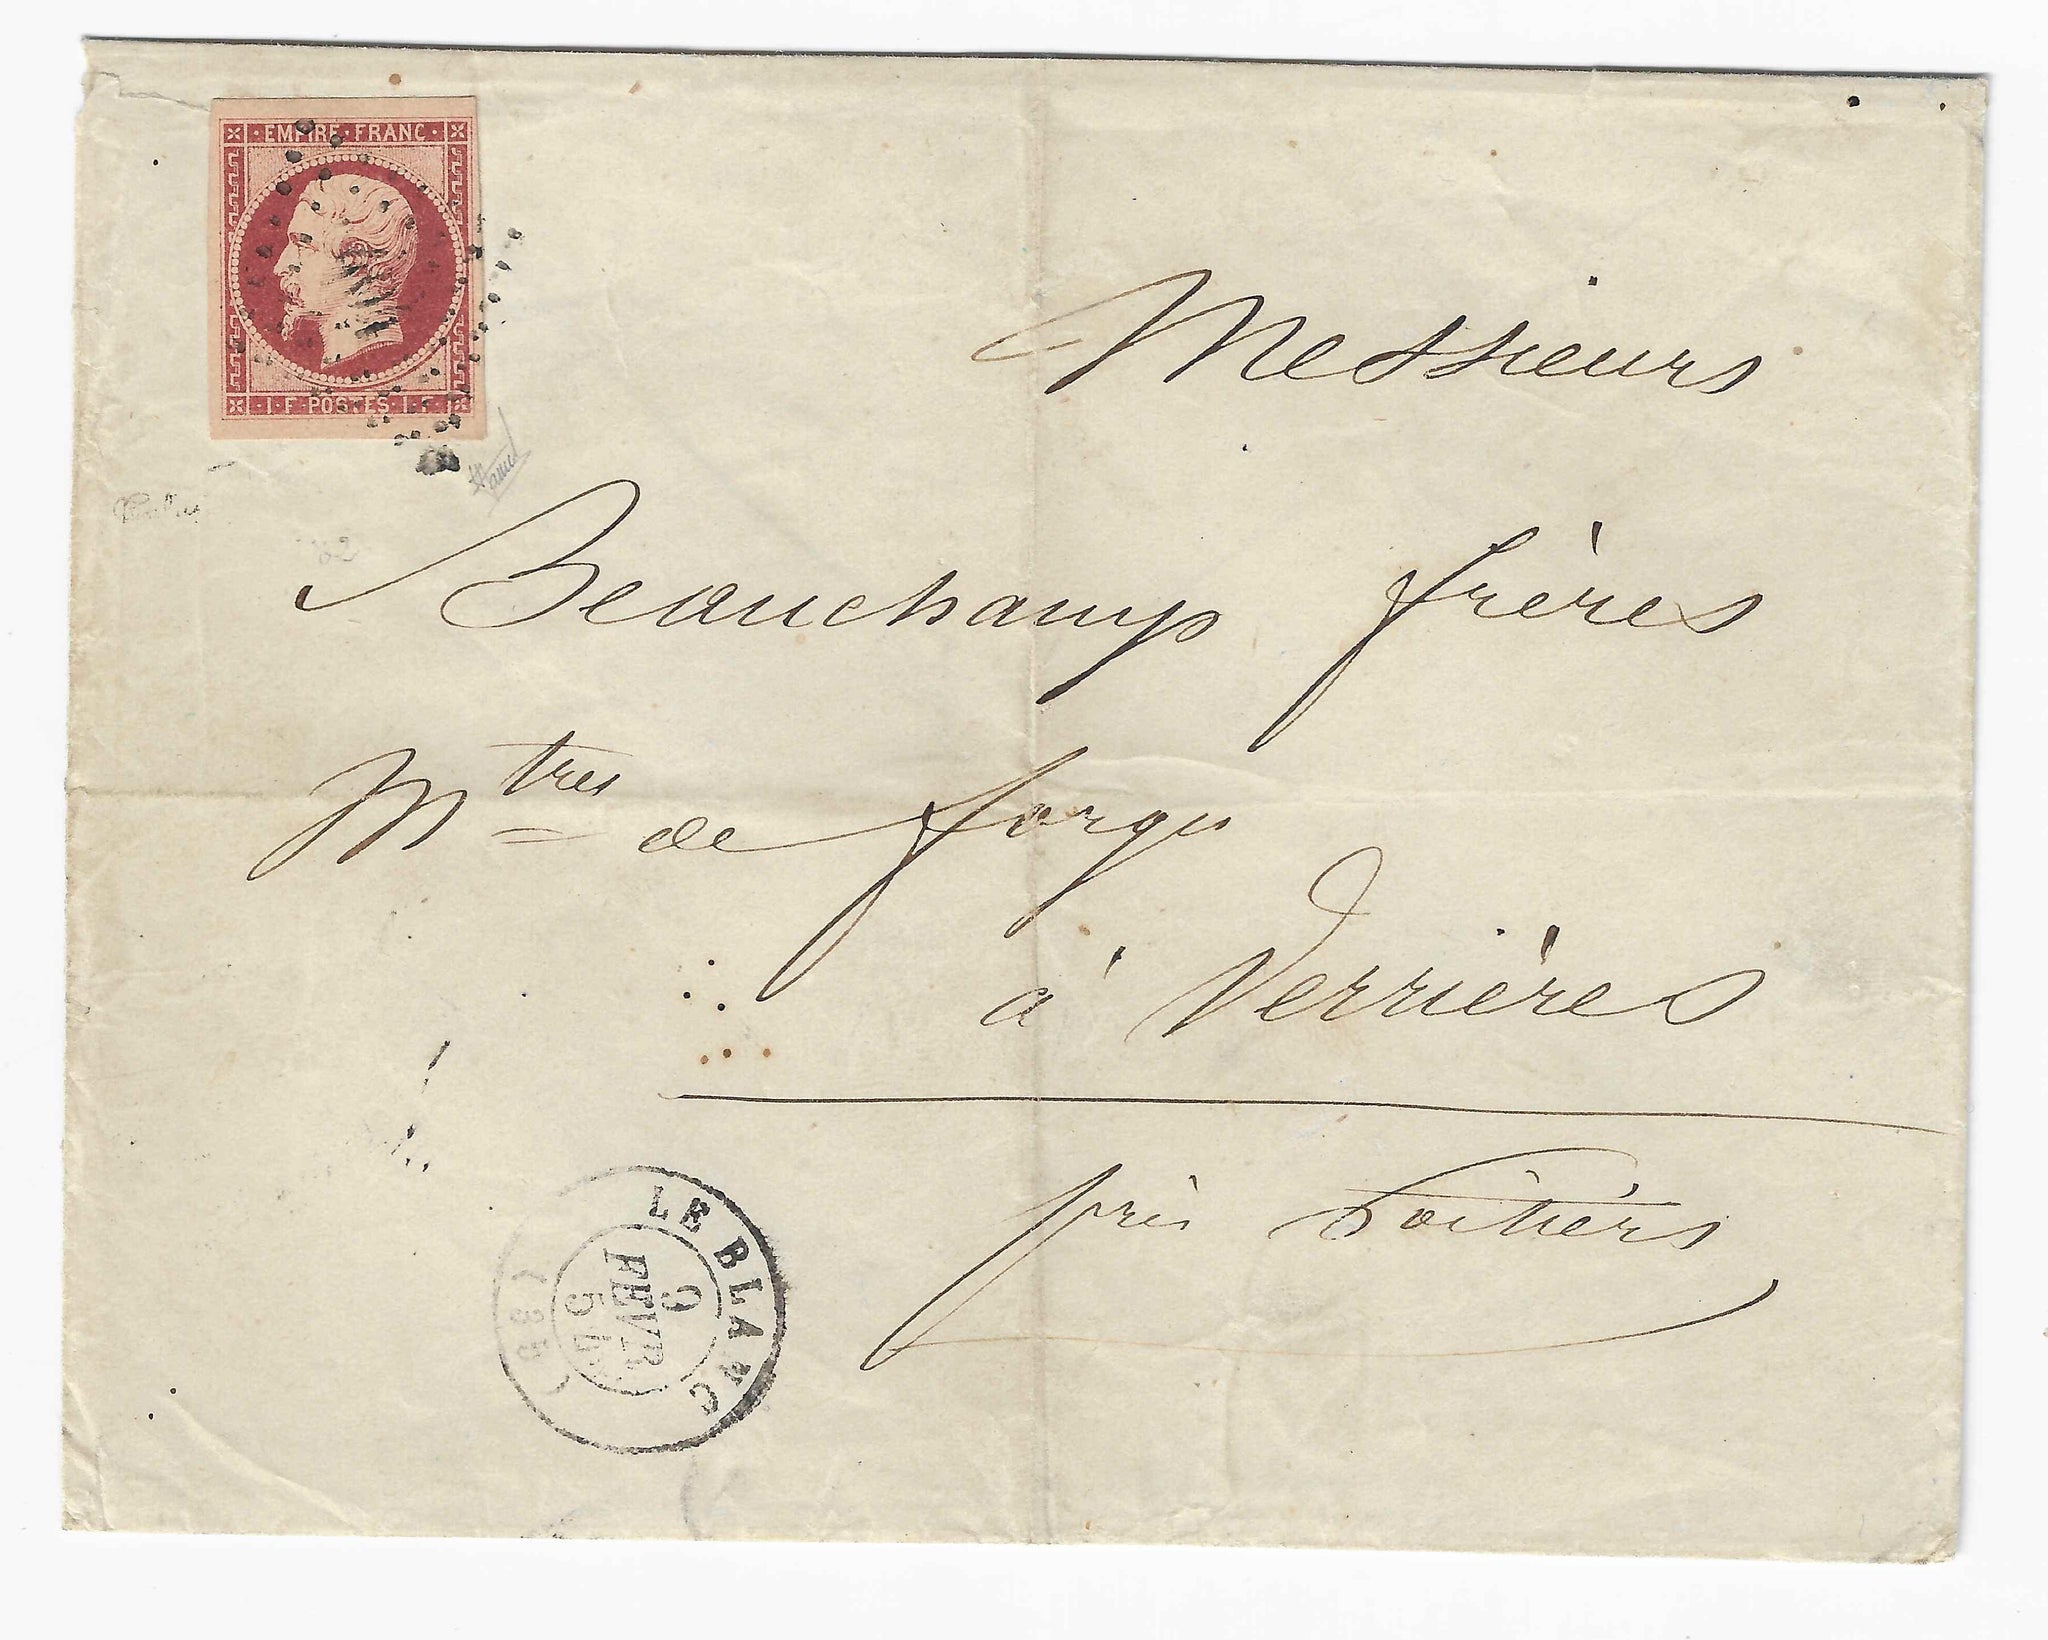 EMPIRE FRANC
I F POSTES I F
Messieurs
Beauchamp frères
Mtres de forges
à Verrières
près Poitiers
LE BLANC
9
FEVR
(35)